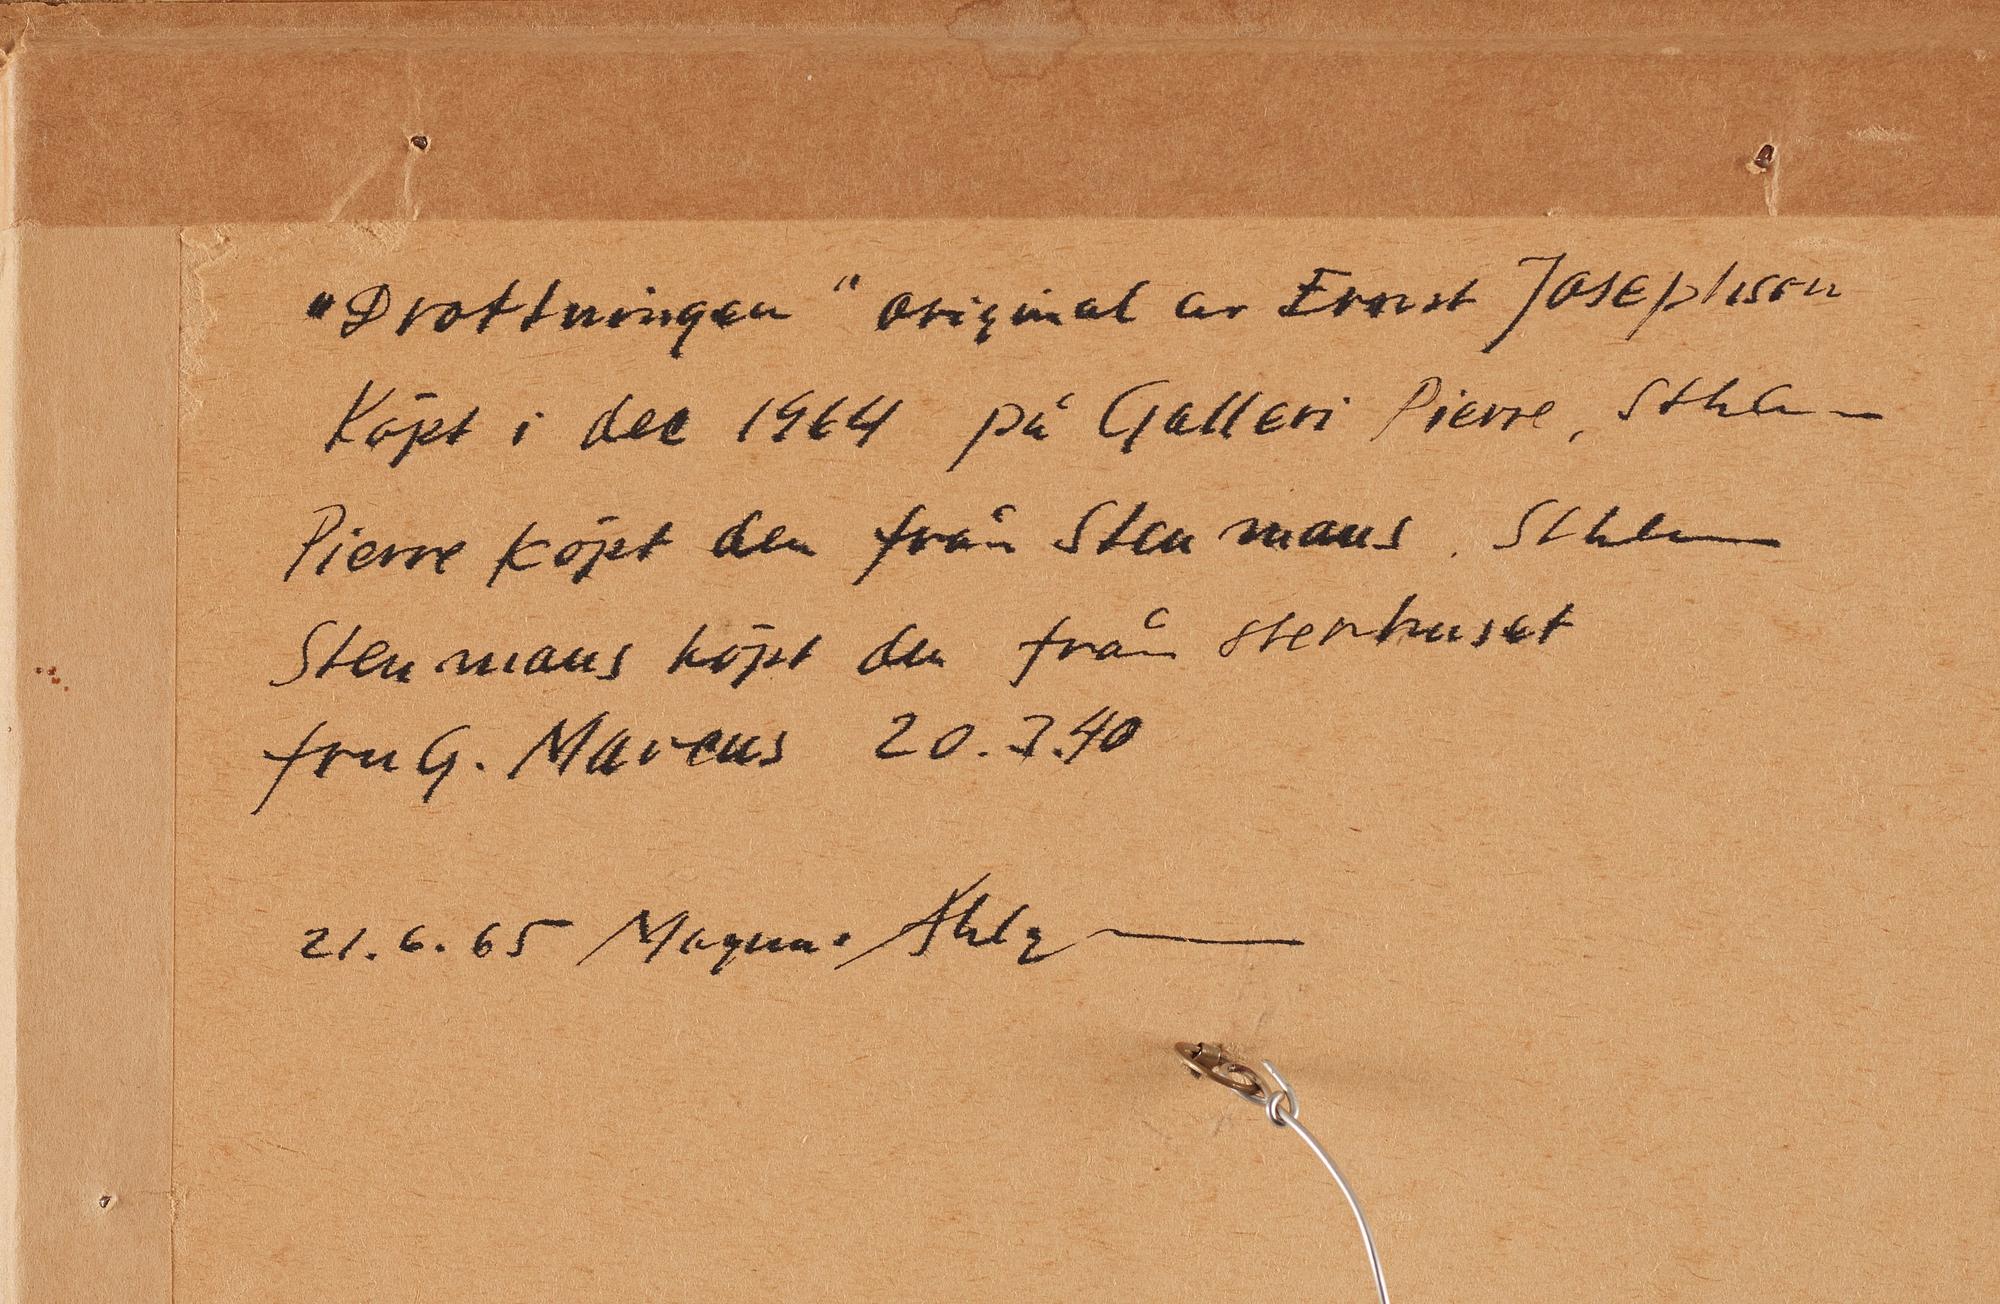 "Drottningen" original av Ernst Josephson
Köpt i dec 1964 på Galleri Pierre, Sthlm
Pierre köpt den från Stenmans. Sthlm
Stenmans köpt den från sterbuset
fru G. Marcus 20.3.40
21.6.65 Magnus